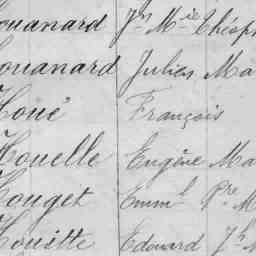 ouanard Jn Mie Théop
ouanard Julien Ma
Houé François
Houelle Eugène Ma
Houget Emml Pre M
Houitte Edouard Jh